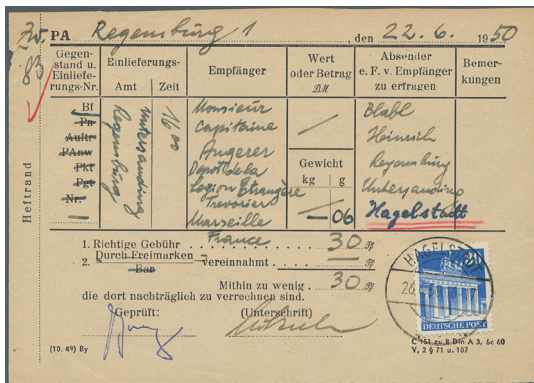 Zw. 83
Heftrand
PA Regensburg 1, den 22. 6. 1950
Gegenstand u. Einlieferungs-Nr.
Einlieferungs-
Amt Zeit
Empfänger
Wert oder Betrag
DM
Absender e. F. v. Empfänger zu erfragen
Bemerkungen
Bf
Pn
Auftr
PAnw
Pkt
Pgt
Nr.
Regensburg
Untersanding
16 00
Monsieur
Capitaine
Angerer
Depot de la
Legion Etrangère
Marseille
France
Gewicht
kg g
— 06
Blabl
Heinrich
Regensburg
Untersanding
Hagelstadt
1. Richtige Gebühr 30 Pf
2. Durch Freimarken
Bar
vereinnahmt — Pf
Mithin zu wenig 30 Pf
die dort nachträglich zu verrechnen sind.
Geprüft: (Unterschrift)
(10. 49) By
HAGELSTADT
DEUTSCHE POST
C 151 zu 8 Din A 3, 6c 60
V, 2 § 71 u. 107